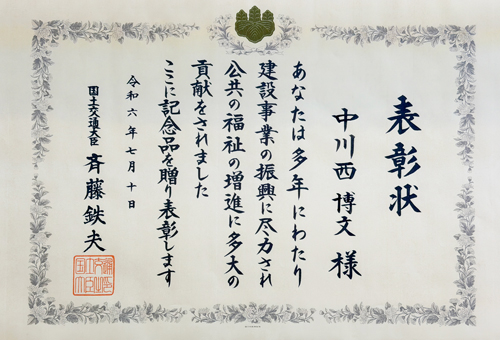 表彰状
中川西 博文 様
あなたは多年にわたり
建設事業の振興に尽力され
公共の福祉の増進に多大の
貢献をされました
ここに記念品を贈り表彰します
令和六年七月十日
国土交通大臣 斉藤鉄夫